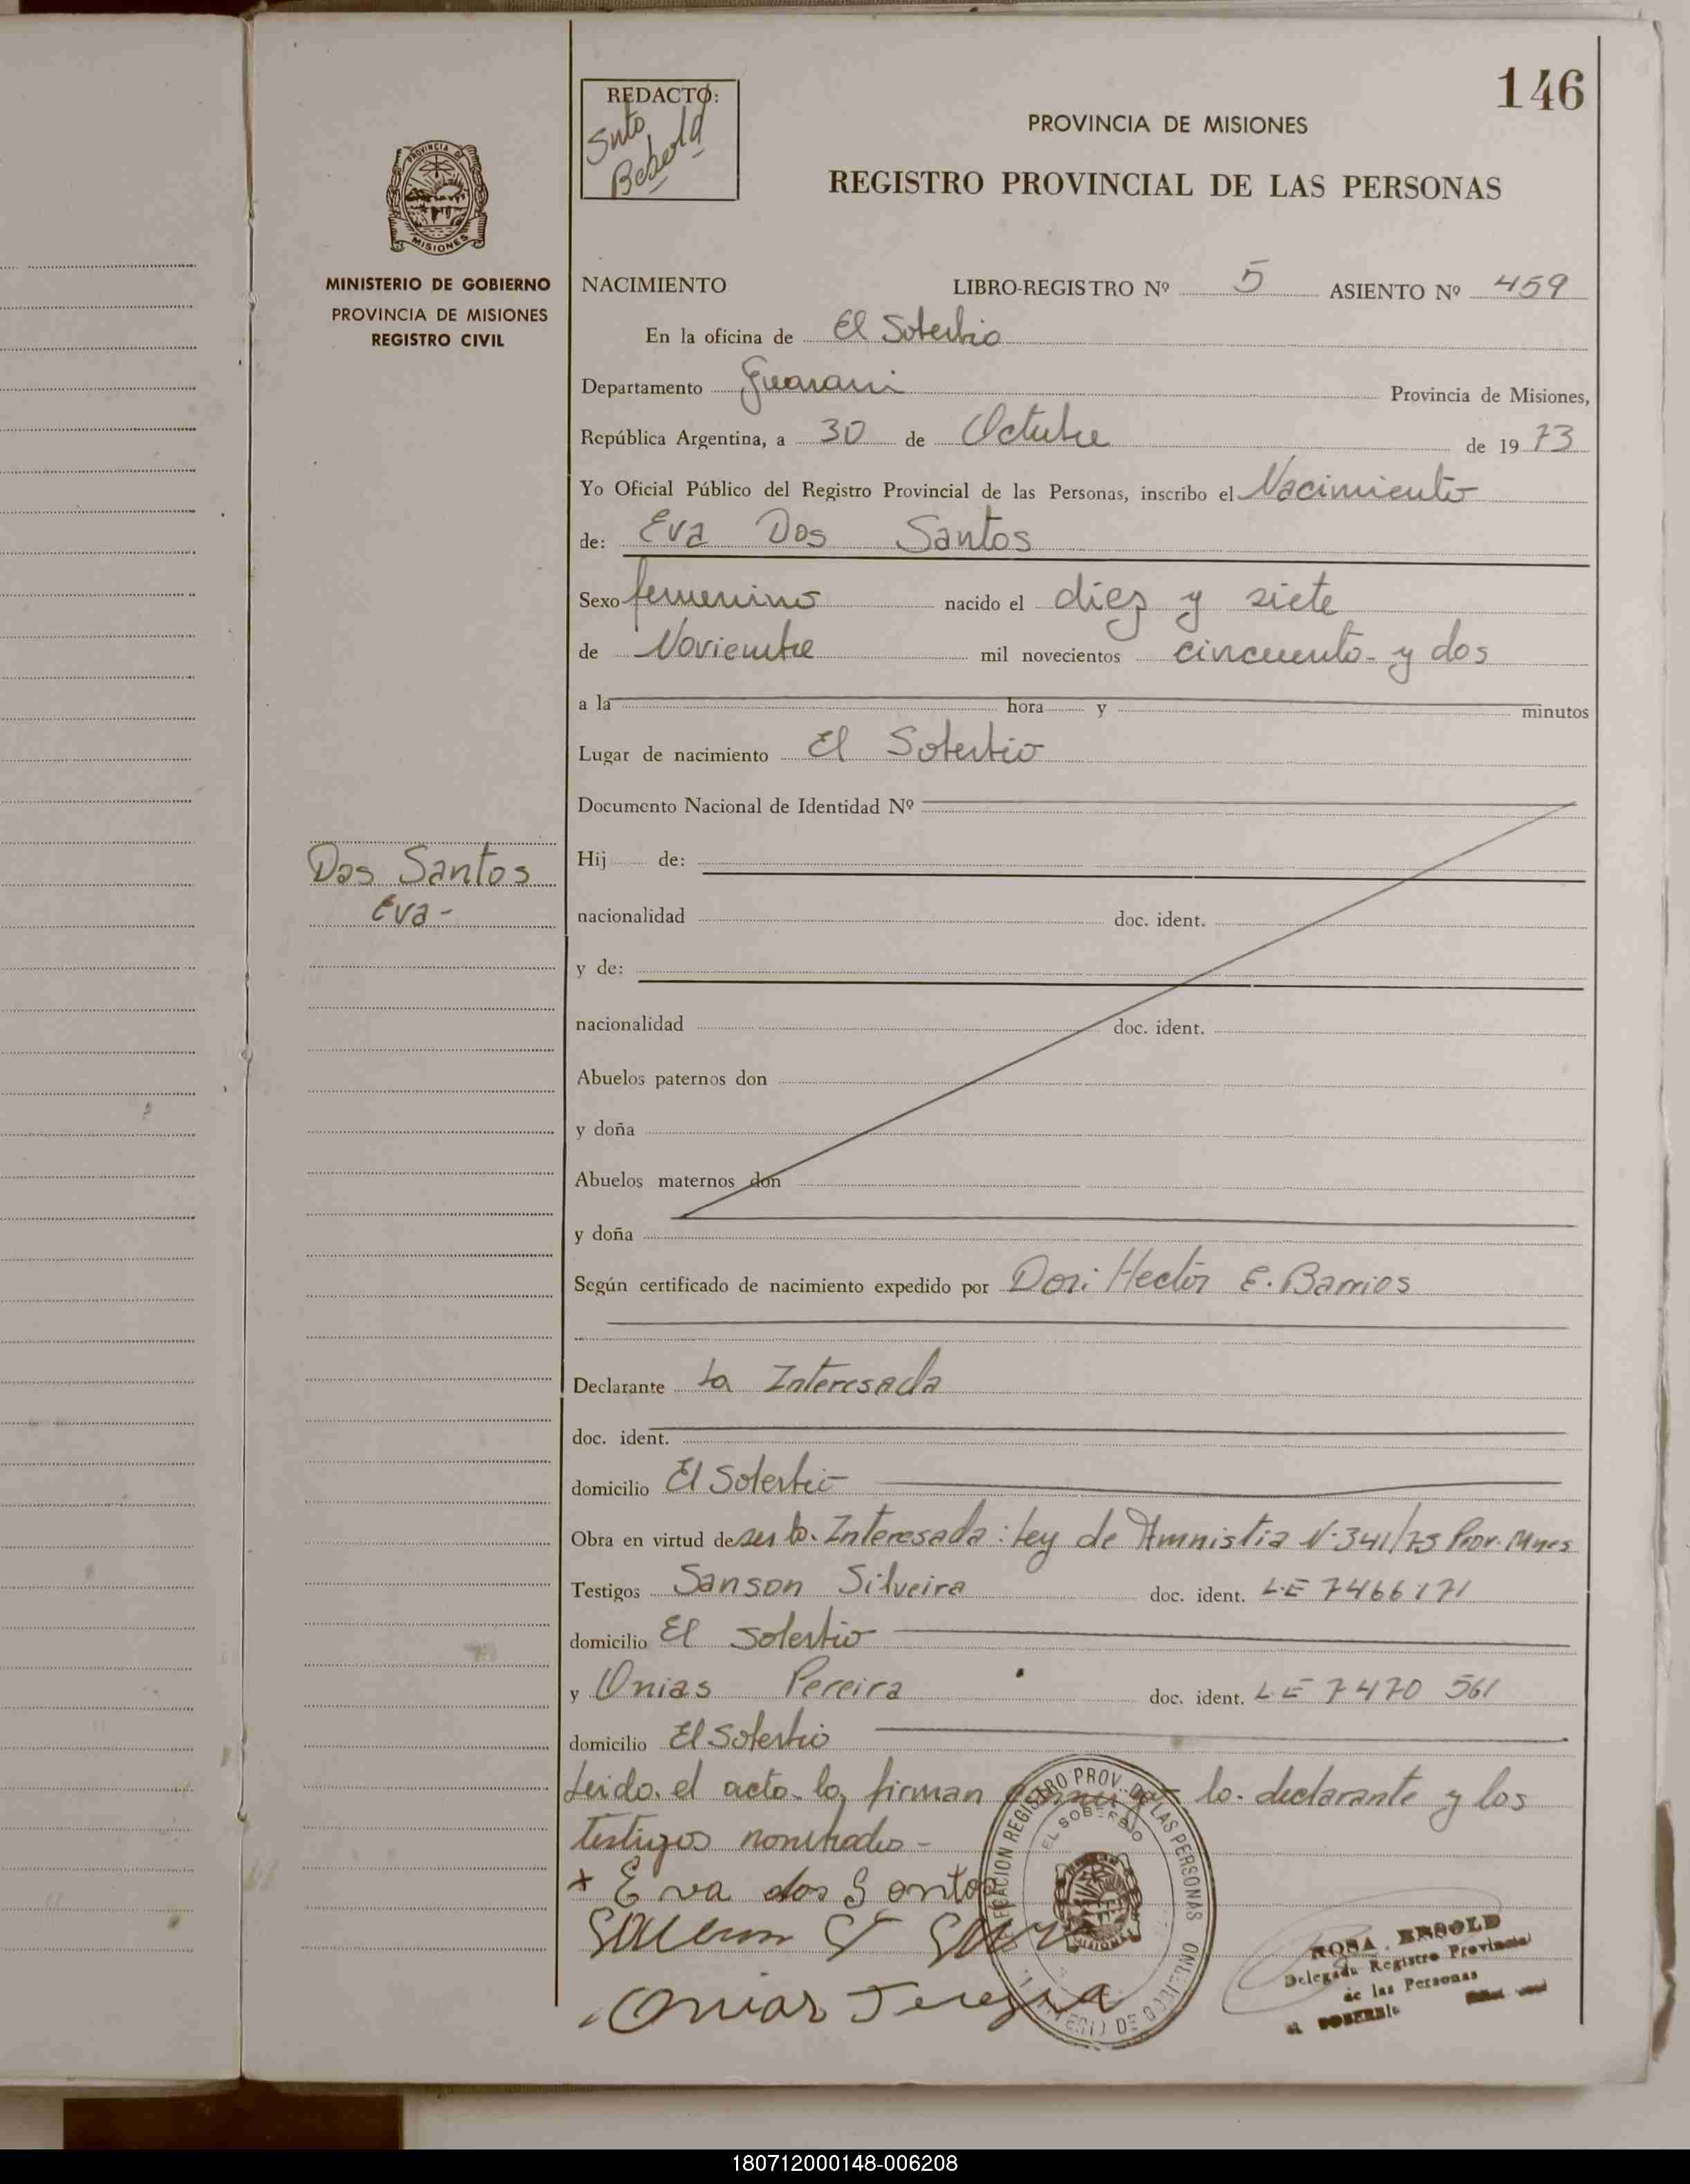 146
REDACTO:
PROVINCIA DE MISIONES
REGISTRO PROVINCIAL DE LAS PERSONAS
PROVINCIA DE
MISIONES
MINISTERIO DE GOBIERNO
PROVINCIA DE MISIONES
REGISTRO CIVIL
NACIMIENTO LIBRO-REGISTRO Nº 5 ASIENTO Nº 459
En la oficina de El Soberbio
Departamento Guarani Provincia de Misiones,
República Argentina, a 30 de Octubre de 19 73
Yo Oficial Público del Registro Provincial de las Personas, inscribo el Nacimiento
de: Eva Dos Santos
Sexo femenino nacido el diez y siete
de Noviembre mil novecientos cincuenta y dos
a la hora y minutos
Lugar de nacimiento El Soberbio
Documento Nacional de Identidad Nº
Dos Santos
Eva-
Hij de:
nacionalidad doc. ident.
y de:
nacionalidad doc. ident.
Abuelos paternos don
y doña
Abuelos maternos don
y doña
Según certificado de nacimiento expedido por Hector E. Barrios
Declarante La Interesada
doc. ident.
domicilio El Soberbio
Obra en virtud de ser la Interesada: Ley de Amnistia Nº 341/73 Prov. Mnes
Testigos Sanson Silveira doc. ident. L.E 7466171
domicilio El Soberbio
y Onias Pereira doc. ident. L.E 7470 561
domicilio El Soberbio
Leido el acto la firman conmigo la declarante y los
testigos nombrados-
+ Eva dos Santos
Onias Pereira
REGISTRO PROV. DE LAS PERSONAS
EL SOBERBIO
MISIONES
ROSA
Delegada Registro Provincial
de las Personas
EL SOBERBIO
180712000148-006208